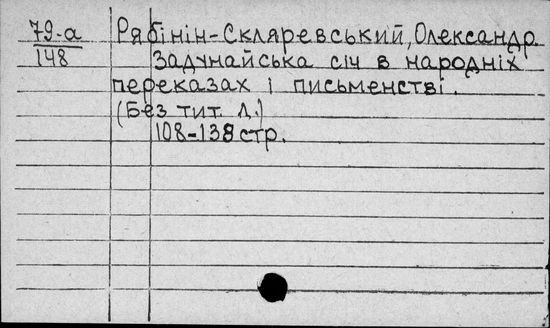 79-а
148
Рябінін-Скляревський, Олександр.
Задунайська січ в народніх
переказах і письменстві.
(Без тит. л.)
108-138 стр.